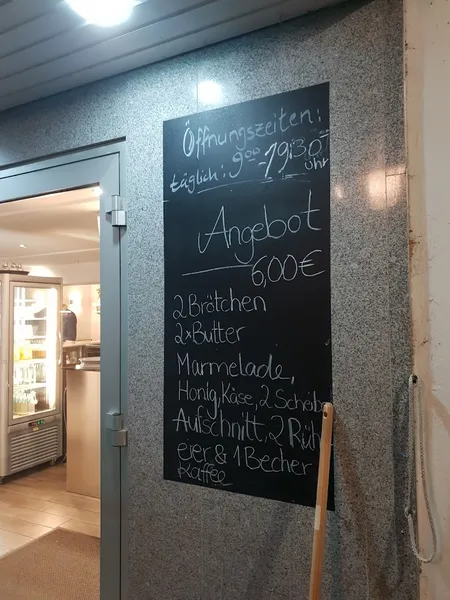 Öffnungszeiten:
täglich: 9⁰⁰-19:30
Uhr
Angebot
6,00€
2 Brötchen
2x Butter
Marmelade,
Honig, Käse, 2 Scheibe
Aufschnitt, 2 Rüh
eier & 1 Becher
Kaffee